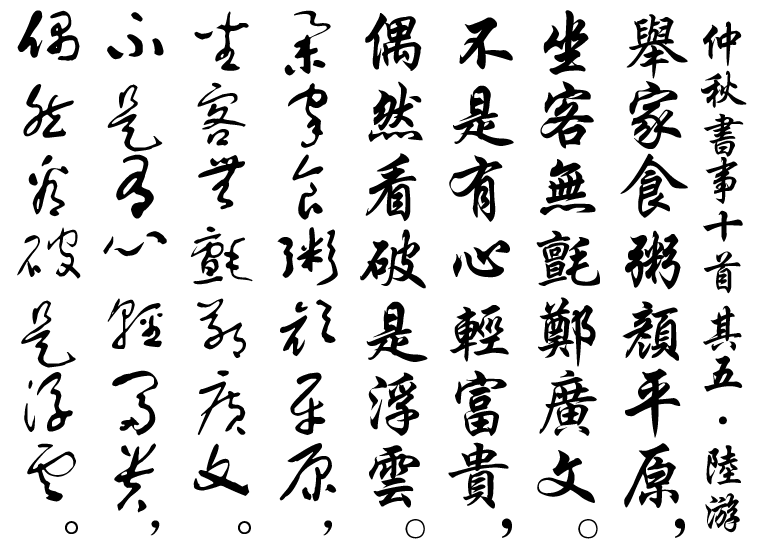 仲秋書事十首 其五·陸游
舉家食粥顏平原，
坐客無氈鄭廣文。
不是有心輕富貴，
偶然看破是浮雲。
舉家食粥顏平原，
坐客無氈鄭廣文。
不是有心輕富貴，
偶然看破是浮雲。